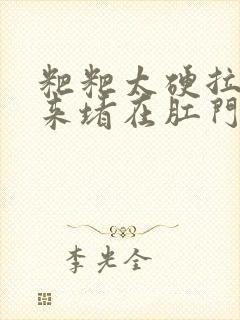 粑粑太硬拉
来堵在肛門
李光全